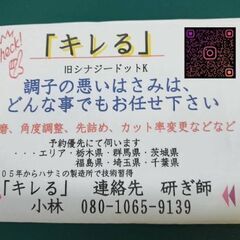 check!
「キレる」
旧シナジードットK
調子の悪いはさみは、
どんな事でもお任せ下さい
磨、角度調整、先詰め、カット率変更などなど
予約優先にて伺います
・・・エリア・栃木県・群馬県・茨城県
福島県・埼玉県・千葉県
05年からハサミの製造所で技術習得
「キレる」 連絡先 研ぎ師
小林 080-1065-9139